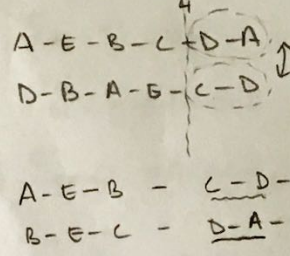 4
A - E - B - C - D - A
D - B - A - E - C - D
A - E - B - C - D -
B - E - C - D - A -